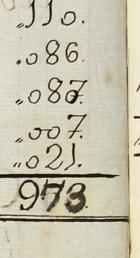 „110.
„086.
„087.
„007.
„021.
973